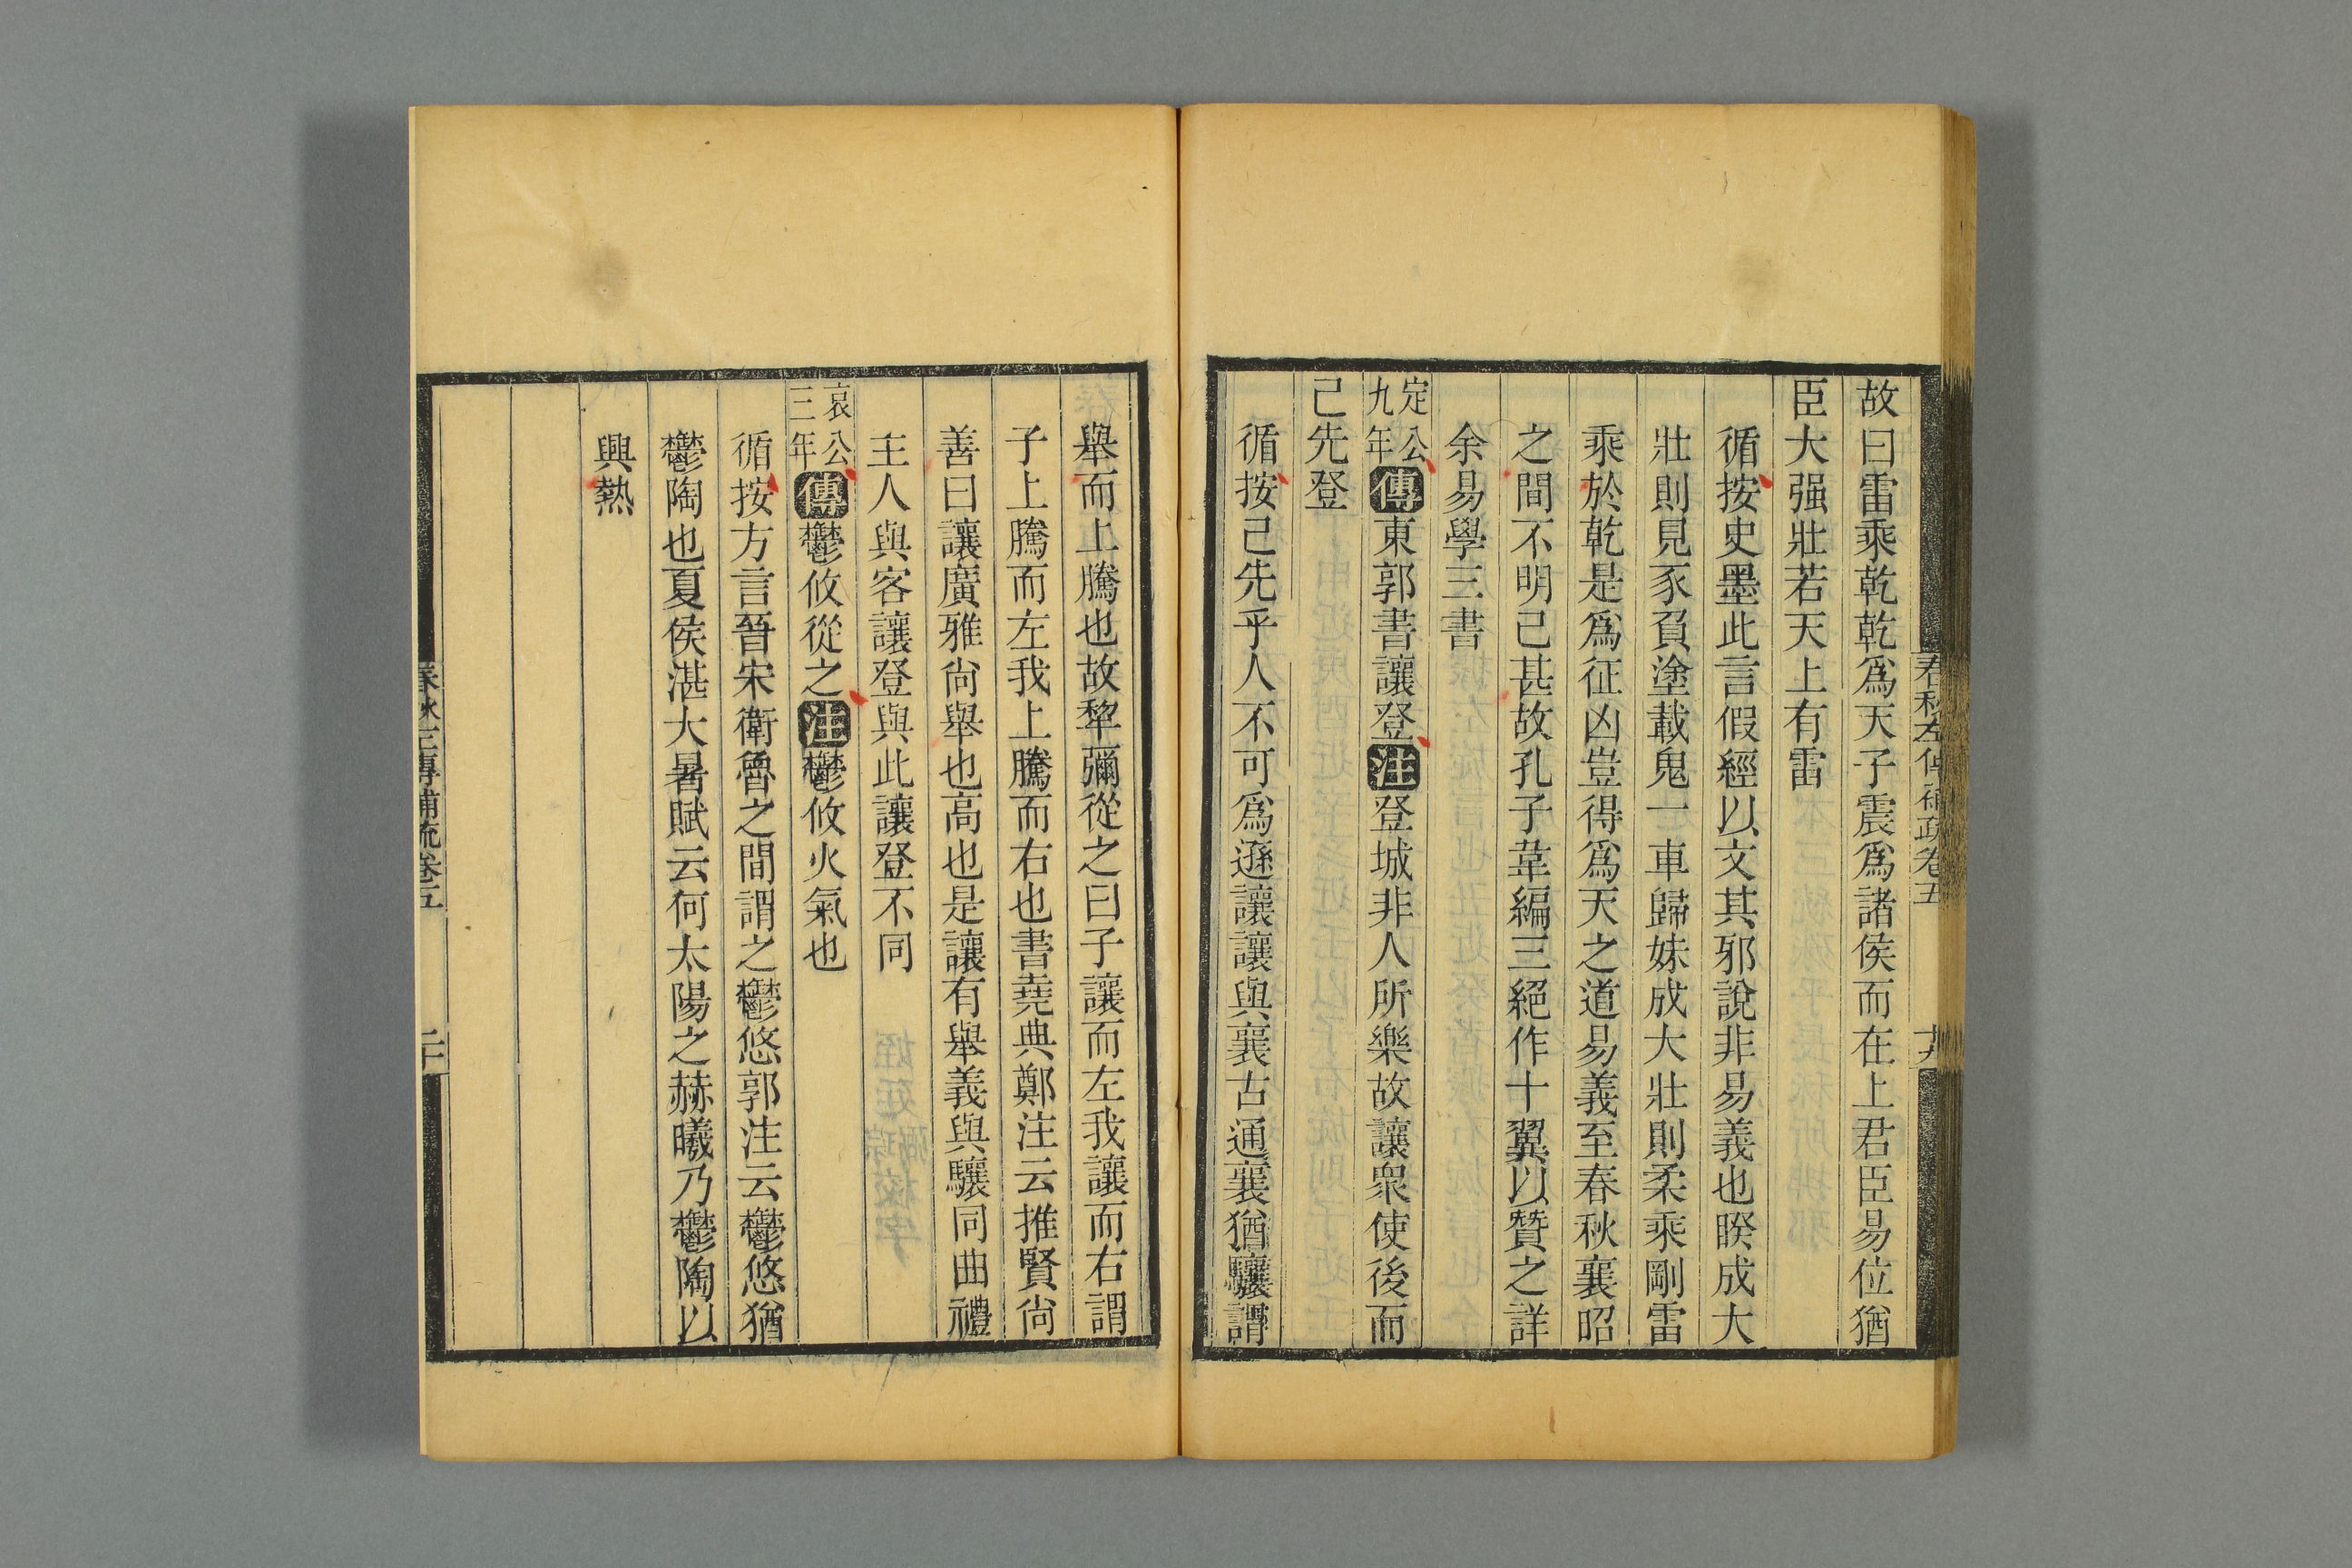 春秋左傳補疏卷五
十九
故曰雷乘乾乾爲天子震爲諸侯而在上君臣易位猶
臣大强壯若天上有雷
循按史墨此言假經以文其邪說非易義也睽成大
壯則見豕負塗載鬼一車歸妹成大壯則柔乘剛雷
乘於乾是爲征凶豈得爲天之道易義至春秋襄昭
之間不明已甚故孔子韋編三絕作十翼以贊之詳
余易學三書
定公九年傳東郭書讓登注登城非人所樂故讓衆使後而
己先登
循按己先乎人不可爲遜讓讓與襄古通襄猶驤謂
舉而上騰也故犂彌從之曰子讓而左我讓而右謂
子上騰而左我上騰而右也書堯典鄭注云推賢尙
善曰讓廣雅尙舉也高也是讓有舉義與驤同曲禮
主人與客讓登與此讓登不同
哀公三年傳鬱攸從之注鬱攸火氣也
循按方言晉宋衛魯之間謂之鬱悠郭注云鬱悠猶
鬱陶也夏侯湛大暑賦云何太陽之赫曦乃鬱陶以
興熱
春秋左傳補疏卷五
二十